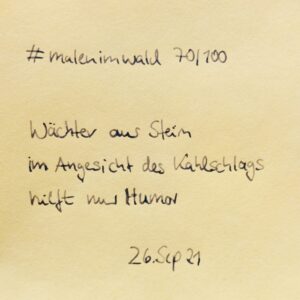 #malenimwald 70/100
Wächter aus Stein
im Angesicht des Kahlschlags
hilft nur Humor
26.Sep 21